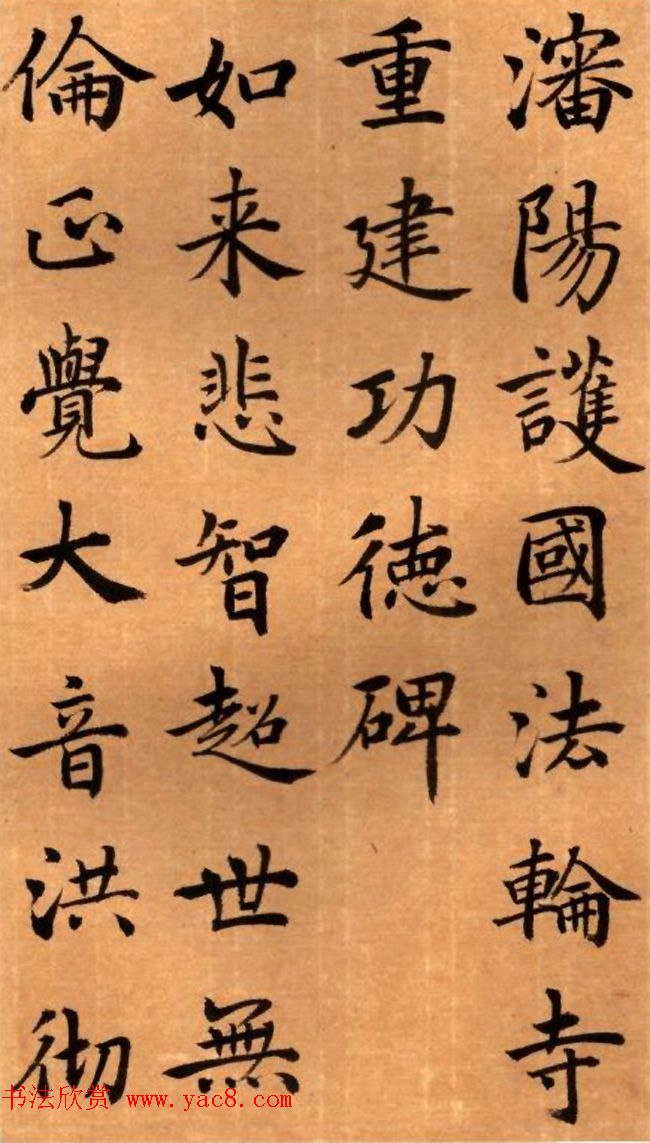 瀋陽護國法輪寺
重建功德碑
如来悲智超世無
倫正覺大音洪彻
书法欣赏 www.yac8.com